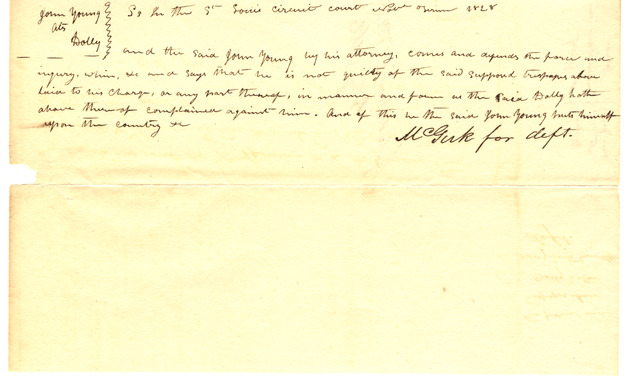 John Young } Ss In the St Louis circuit court Nov. Term 1828
ats
Dolly
And the said John Young by his attorney, comes and defends the force and
injury, when, &c and says that he is not guilty of the said supposd trespasses above
laid to his charge, or any part thereof, in manner and form as the said Dolly hath
above thereof complained against him. And of this he the said John Young puts himself
upon the country &c
McGirk for deft.